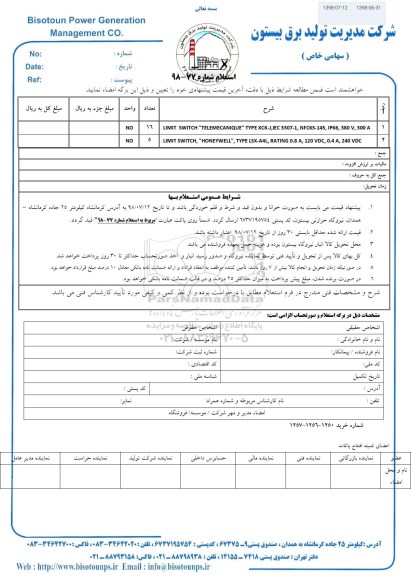 بسمه تعالی
1398-07-12
1398-06-31
Bisotoun Power Generation
Management CO.
شرکت مدیریت تولید برق بیستون
( سهامی خاص )
No:
شماره :
Date:
تاریخ :
Ref:
پیوست :
استعلام شماره ۷۷-۹۸
خواهشمند است ضمن مطالعه شرایط ذیل با دقت، آخرین قیمت پیشنهادی خود را تعیین و ذیل این برگه امضاء نمایید.
ردیف شرح تعداد واحد مبلغ جزء به ریال مبلغ کل به ریال
۱ LIMIT SWITCH "TELEMECANIQUE" TYPE XCK-J,IEC 5507-1, NFC63-145, IP66, 380 V, 500 A ۱۶ NO
۲ LIMIT SWITCH, "HONEYWELL", TYPE LSX-A4L, RATING 0.8 A, 120 VDC, 0.4 A, 240 VDC ۵ NO
جمع :
مالیات بر ارزش افزوده :
جمع کل به حروف :
زمان تحویل:
شرایط عمومی استعلام بها
۱. پیشنهاد قیمت می بایست به صورت خوانا و بدون قید و شرط و قلم خوردگی باشد و تا تاریخ ۹۸/۰۷/۱۲ به آدرس کرمانشاه کیلومتر ۲۵ جاده کرمانشاه –
همدان، نیروگاه حرارتی بیستون، کد پستی ۶۷۳۷۱۹۵۷۵۴ ارسال گردد. ضمناً روی پاکت عبارت "مربوط به استعلام شماره ۷۷-۹۸" قید گردد.
۲. قیمت ارائه شده حداقل بایستی ۳۰ روز از تاریخ ۹۸/۰۷/۱۲ اعتبار داشته باشد.
۳. محل تحویل کالا انبار نیروگاه بیستون بوده و هزینه حمل بعهده فروشنده می باشد.
۴. کل بهای کالا پس از تحویل و تأیید فنی توسط نماینده نیروگاه و صدور رسید انبار و أخذ صورتحساب حداکثر تا ۳۰ روز پرداخت خواهد شد.
شرح و مشخصات فنی مندرج در فرم استعلام مطابق با درخواست بوده و از نظر کمی و کیفی مورد تأیید کارشناس فنی می باشد.
ParsNamadData
مشخصات ذیل در برگه استعلام و صورتحساب الزامی است:
اشخاص حقیقی
اشخاص حقوقی
نام و نام خانوادگی :
نام موسسه / شرکت:
فروشنده / پیمانکار:
شماره ثبت شرکت:
کد ملی:
کد اقتصادی :
تاریخ تکمیل
شناسه ملی :
آدرس :
کد پستی :
تلفن :
نام کارشناس مربوطه و شماره همراه
نمابر:
امضاء مدیر و مهر شرکت / موسسه/ فروشگاه
شماره خرید ۱۲۵۰-۱۲۵۶-۱۲۵۷
اعضای کمیته افتتاح پاکات
عضو نماینده بازرگانی نماینده فنی نماینده مالی حسابرس داخلی نماینده شرکت تولید نماینده حراست نماینده مدیر عامل
نام و محل امضاء
آدرس: کیلومتر ۲۵ جاده کرمانشاه به همدان ، صندوق پستی ۹-۶۷۳۷۵ ، کدپستی : ۶۷۳۷۱۹۵۷۵۴ ، تلفن : ۲۰-۳۴۶۴۲۰-۰۸۳ ، فاکس : ۳۴۶۴۲۷۰۰-۰۸۳
تهران : صندوق پستی ۷۴۱۸ – ۱۴۱۵۵ ، تلفن : ۸۸۷۹۸۹۳۸ -۰۲۱ ، فاکس : ۸۸۷۹۳۱۵۸ – ۰۲۱
Web : http://www.bisotounps.ir
Email : info@bisotounps.ir